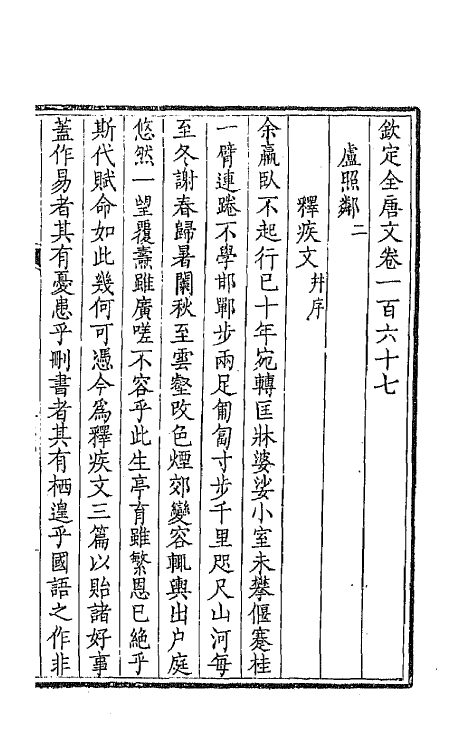 欽定全唐文卷一百六十七
盧照鄰二
釋疾文幷序
余羸臥不起行已十年宛轉匡牀婆娑小室未攀偃蹇桂
一臂連踡不學邯鄲步兩足匍匐寸步千里咫尺山河每
至冬謝春歸暑闌秋至雲壑改色煙郊變容輒輿出户庭
悠然一望覆燾雖廣嗟不容乎此生亭育雖繁恩已絶乎
斯代賦命如此幾何可憑今爲釋疾文三篇以貽諸好事
蓋作易者其有憂患乎刪書者其有栖遑乎國語之作非